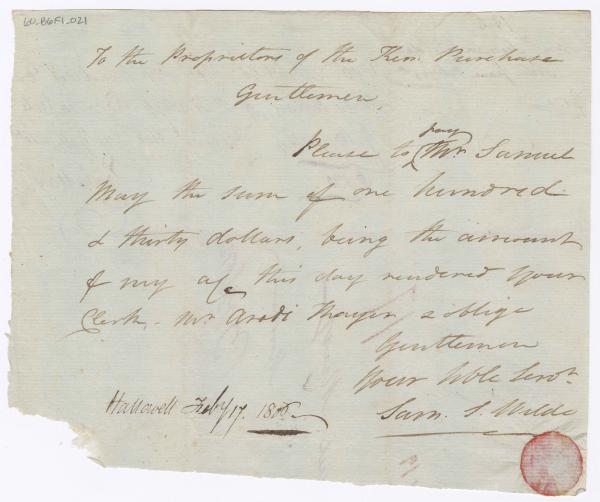 60-B6F1-021
To the Proprietors of the Ken. Purchase
Gentlemen,
pay
Please to Mr. Samuel
May the sum of one hundred
& thirty dollars, being the amount
of my a/c this day rendered your
Clerk Mr. Arodi Thayer & oblige
Gentlemen
Your hble Servt.
Sam. S. Wilde
Hallowell Feby 17.